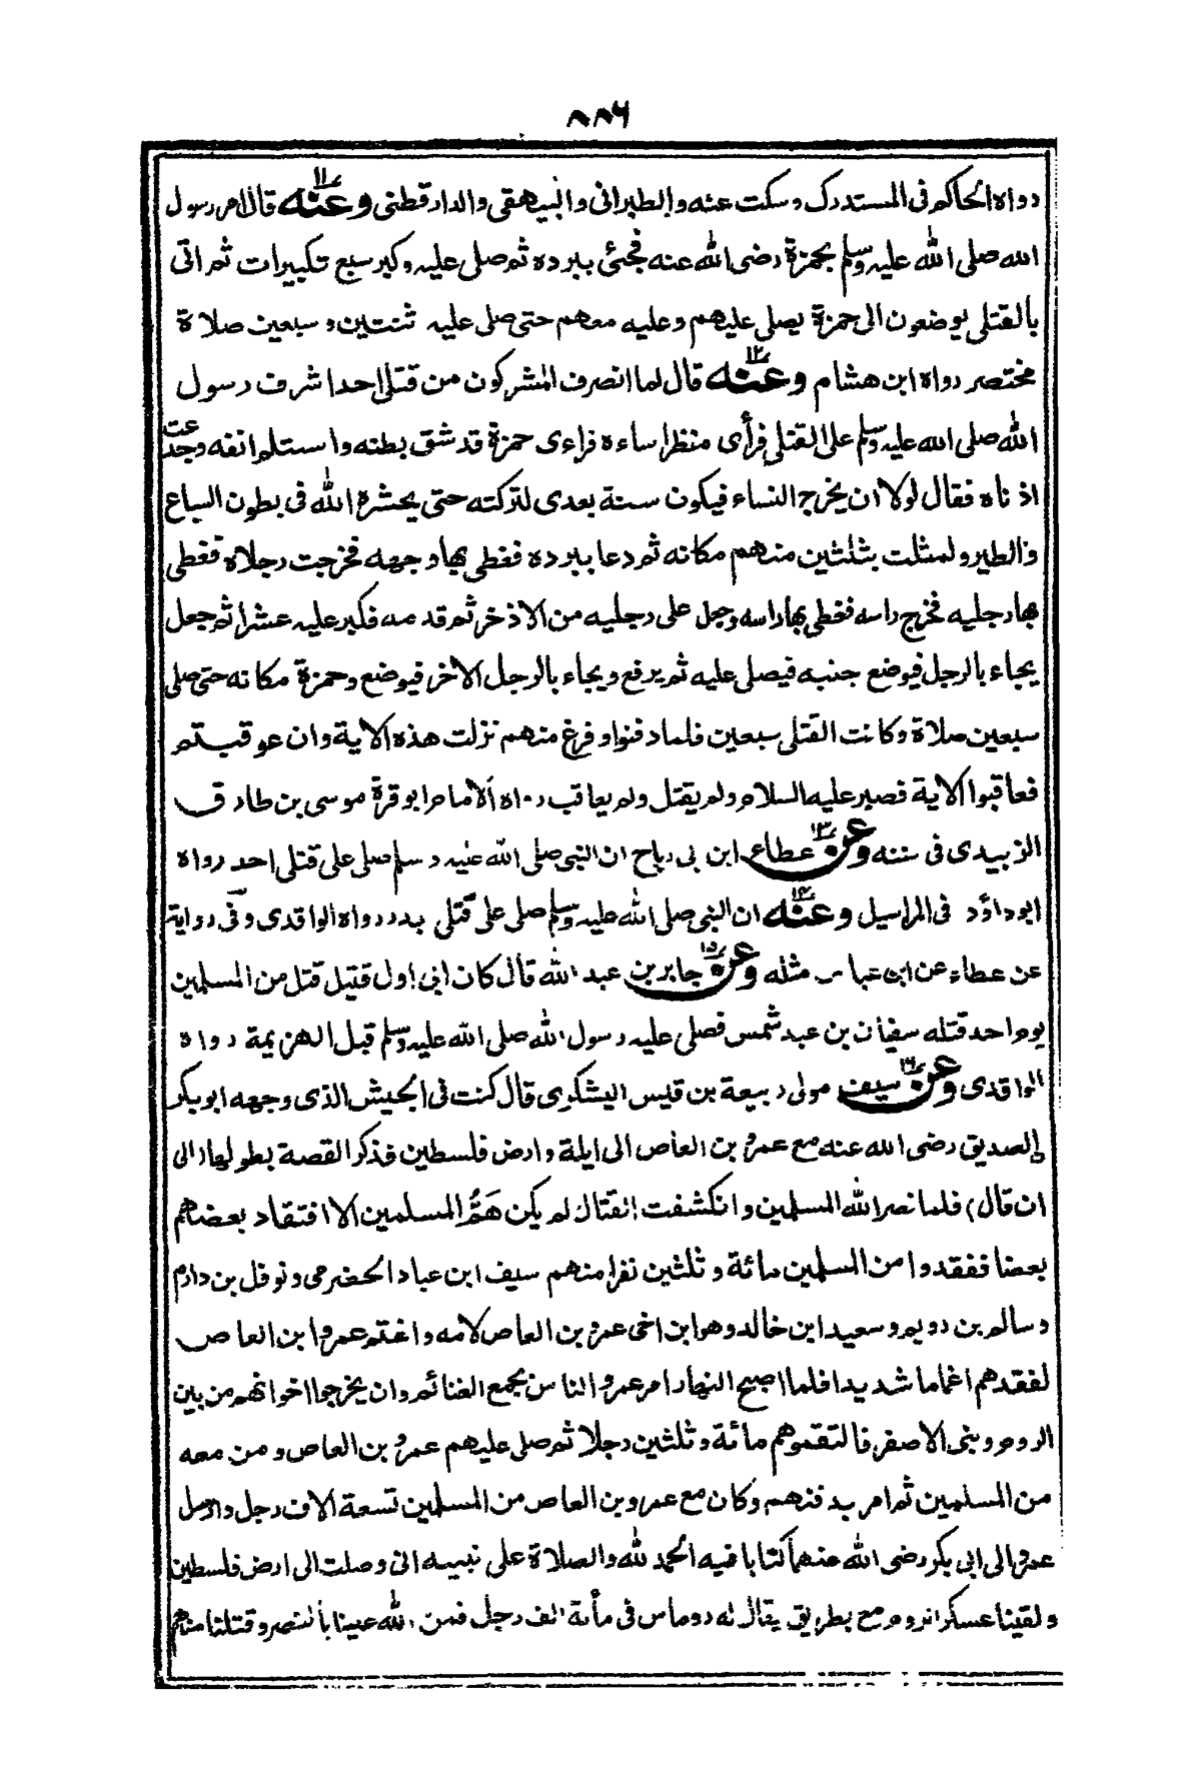 ٨٨٦
رواه الحاكم فى المستدرك وسكت عنه والطبرانى والبيهقى والدارقطنى وعنه ١١ قال امر رسول
الله صلى الله عليه وسلم بحمزة رضى الله عنه فجئى ببرده ثم صلى عليه وكبر سبع تكبيرات ثم اتى
بالقتلى يوضعون الى حمزة يصلى عليهم وعليه معهم حتى صلى عليه ثنتين و سبعين صلاة
مختصر رواه ابن هشام وعنه ١٢ قال لما انصرف المشركون من قتلى احد اشرف رسول
الله صلى الله عليه وسلم على القتلى فرأى منظرا ساءه فراءى حمزة قد شق بطنه واستلم انفه وجدعت
اذناه فقال لولا ان يخرج النساء فيكون سنة بعدى لتركته حتى يحشره الله فى بطون السباع
والطير ولمثلت بثلثين منهم مكانه ثم دعا ببرده فغطى بها وجهه فخرجت رجلاه فغطى
بها رجليه فخرج راسه فغطى بها راسه وجعل على رجليه من الاذخر ثم قدمه فكبر عليه عشرا ثم جعل
يجاء بالرجل فيوضع جنبه فيصلى عليه ثم يرفع ويجاء بالرجل الاخر فيوضع وحمزة مكانه حتى صلى
سبعين صلاة وكانت القتلى سبعين فلما دفنوا وفرغ منهم نزلت هذه الاية وان عوقبتم
فعاقبوا الاية فصبر عليه السلام ولم يقتل ولم يعاقب رواه الامام ابو قرة موسى بن طارق
الزبيدى فى سننه وعن ١٣ عطاء ابن بى رباح ان النبى صلى الله عليه وسلم صلى على قتلى احد رواه
ابو داؤد فى المراسيل وعنه ١٤ ان النبى صلى الله عليه وسلم صلى على قتلى بدر رواه الواقدى وفى رواية
عن عطاء عن ابن عباس مثله وعن ١٥ جابر بن عبد الله قال كان ابى اول قتيل قتل من المسلمين
يوم احد قتله سفيان بن عبد شمس فصلى عليه رسول الله صلى الله عليه وسلم قبل الهزيمة رواه
الواقدى وعن ١٦ سيف مولى ربيعة بن قيس اليشكرى قال كنت فى الجيش الذى وجهه ابو بكر
الصديق رضى الله عنه مع عمرو بن العاص الى ايلة وارض فلسطين فذكر القصة بطولها (الى
ان قال) فلما نصر الله المسلمين وانكشفت القتال لم يكن هَمُّ المسلمين الا افتقاد بعضهم
بعضا ففقدوا من المسلمين مائة وثلثين نفرا منهم سيف ابن عباد الحضرمى ونوفل بن دارم
وسالم بن رويم وسعيد ابن خالد وهو ابن اخى عمرو بن العاص لامه واغتم عمرو ابن العاص
لفقدهم اغماما شديدا فلما اصبح النهار امر عمرو الناس بجمع الغنائم وان يخرجوا اخوانهم من بين
الروم وبنى الاصفر فالتقموهم مائة وثلثين رجلا ثم صلى عليهم عمرو بن العاص ومن معه
من المسلمين ثم امر بدفنهم وكان مع عمرو بن العاص من المسلمين تسعة الاف رجل وارسل
عمرو الى ابى بكر رضى الله عنهما كتابا فيه الحمد لله والصلاة على نبيه انى وصلت الى ارض فلسطين
ولقينا عسكر الروم مع بطريق يقال له روماس فى مأة الف رجل فمن الله علينا بالنصر وقتلنا منهم